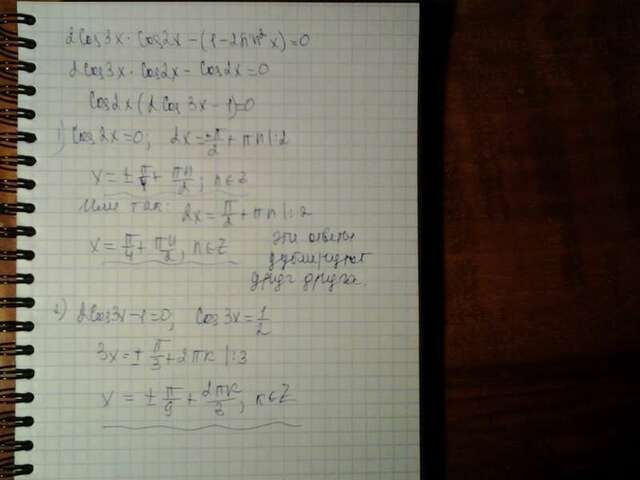 2Cos3x·Cos2x-(1-2sin²x)=0
2Cos3x·Cos2x-Cos2x=0
Cos2x(2Cos3x-1)=0
1) Cos2x=0; 2x=±π/2+πn|:2
x=±π/4+πn/2; n∈Z
Или так: 2x=π/2+πn|:2
x=π/4+πn/2, n∈Z
эти ответы
дублируют
друг друга.
2) 2Cos3x-1=0; Cos3x=1/2
3x=±π/3+2πk|:3
x=±π/9+2πk/3, k∈Z